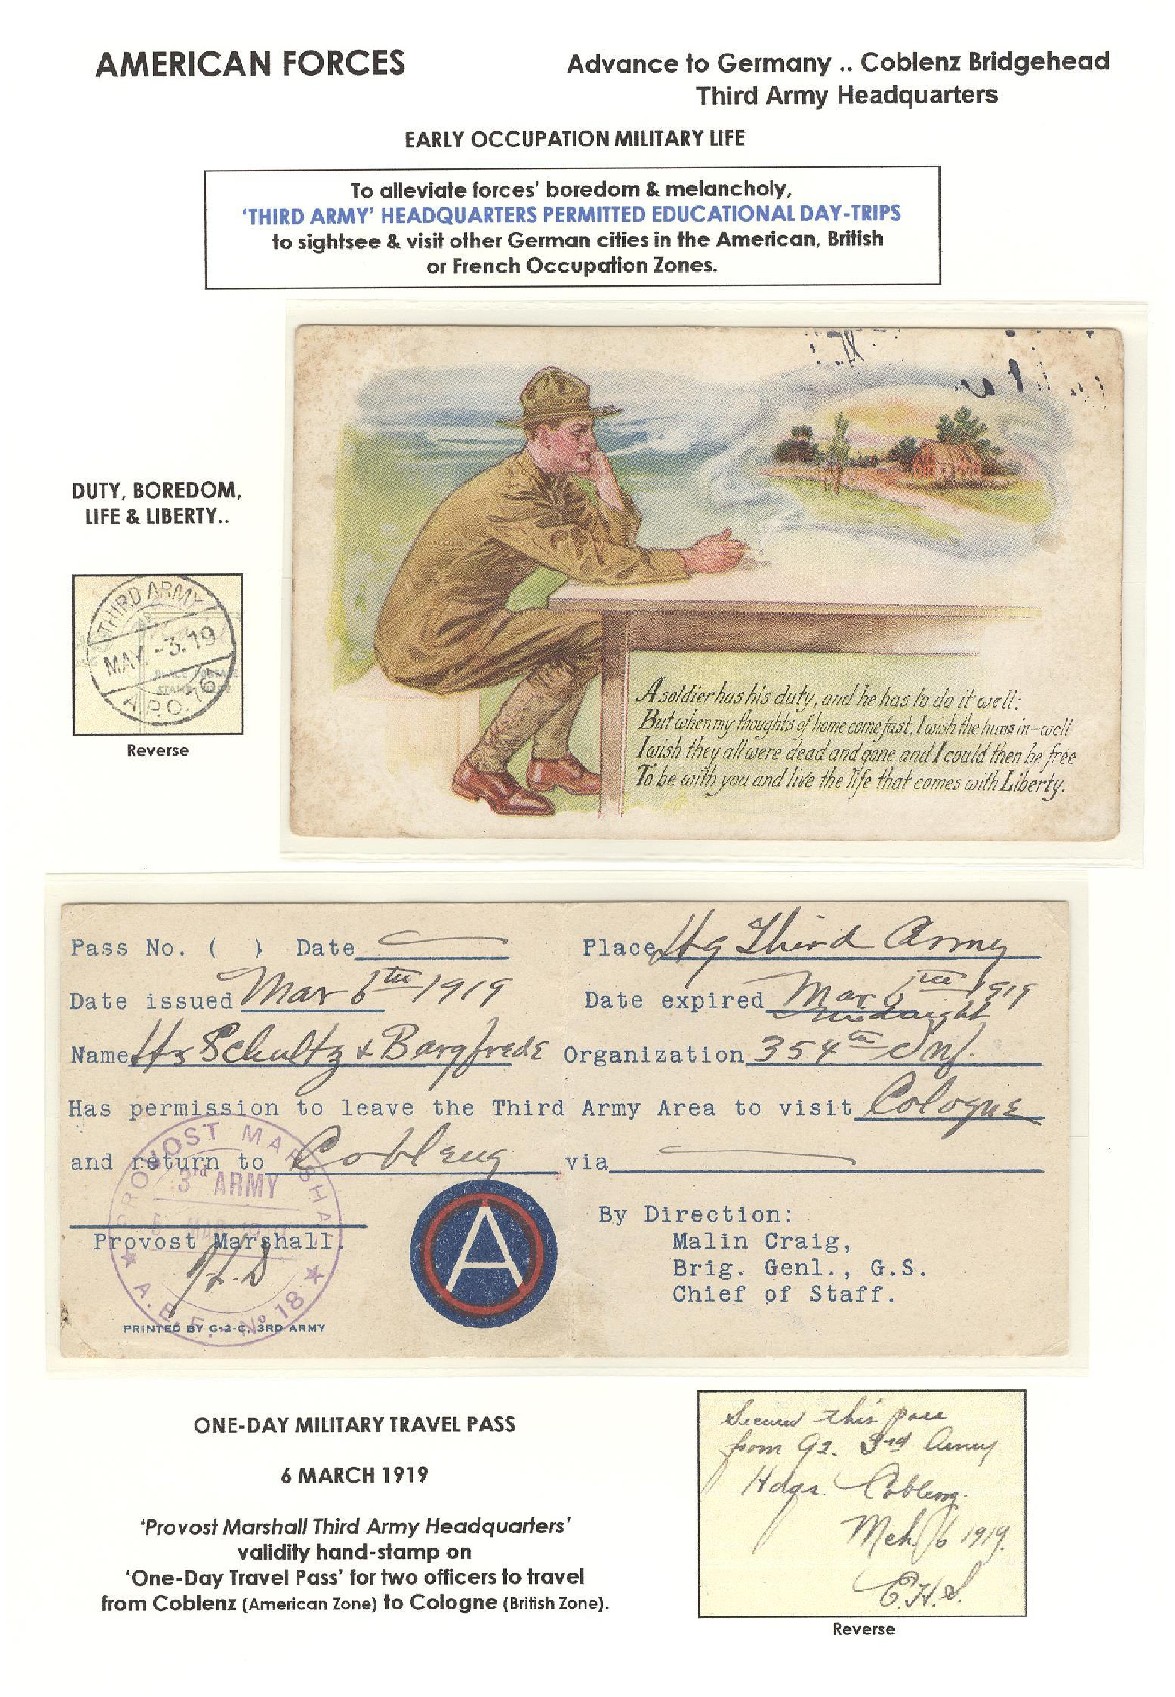 AMERICAN FORCES
Advance to Germany .. Coblenz Bridgehead
Third Army Headquarters
EARLY OCCUPATION MILITARY LIFE
To alleviate forces' boredom & melancholy,
'THIRD ARMY' HEADQUARTERS PERMITTED EDUCATIONAL DAY-TRIPS
to sightsee & visit other German cities in the American, British
or French Occupation Zones.
DUTY, BOREDOM,
LIFE & LIBERTY..
THIRD ARMY
MAY -3.19
A.P.O.
Reverse
A soldier has his duty, and he has to do it well;
But when my thoughts of home come fast, I wish the huns in—well
I wish they all were dead and gone and I could then be free
To be with you and live the life that comes with Liberty.
Pass No. ( ) Date
Place Hq Third Army
Date issued Mar 6th 1919
Date expired Mar 6th 1919
Midnight
Name Schultz & Bargfrede Organization 354th Inf.
Has permission to leave the Third Army Area to visit Cologne
and return to Coblenz via
PROVOST MARSHAL
3rd ARMY
A.E.F. No 18
Provost Marshall.
A
By Direction:
Malin Craig,
Brig. Genl., G.S.
Chief of Staff.
PRINTED BY G-2-C, 3RD ARMY
ONE-DAY MILITARY TRAVEL PASS
6 MARCH 1919
'Provost Marshall Third Army Headquarters'
validity hand-stamp on
'One-Day Travel Pass' for two officers to travel
from Coblenz (American Zone) to Cologne (British Zone).
Secured this pass
from G2. 3rd Army
Hdqs. Coblenz.
Mch. 6 1919.
E.H.S.
Reverse